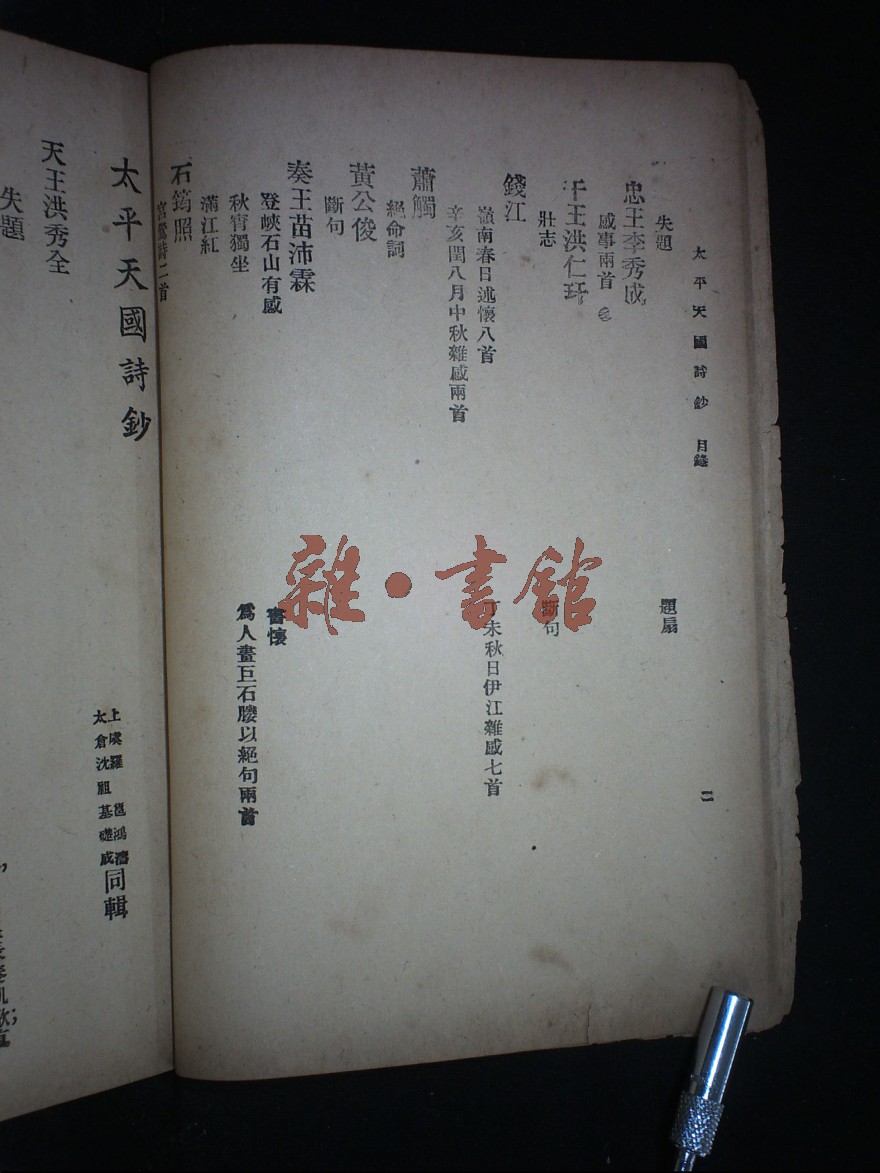 太平天國詩鈔 目錄 二
失題
題扇
忠王李秀成
感事兩首
干王洪仁玕
壯志
斷句
錢江
嶺南春日述懷八首
丁未秋日伊江雜感七首
辛亥閏八月中秋雜感兩首
蕭觸
絕命詞
黃公俊
斷句
奏王苗沛霖
登峽石山有感
書懷
秋宵獨坐
爲人畫巨石媵以絕句兩首
滿江紅
石筠照
宮鶯詩二首
太平天國詩鈔
上虞羅邕鴻濤
太倉沈祖基礎成
同輯
天王洪秀全
失題
雜·書館